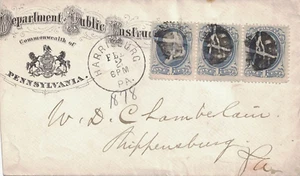 Department Public Instruc
Commonwealth of
PENNSYLVANIA.
HARRISBURG
FEB
6PM
PA.
1878
W. D. Chamberlain.
Shippensburg
Pa